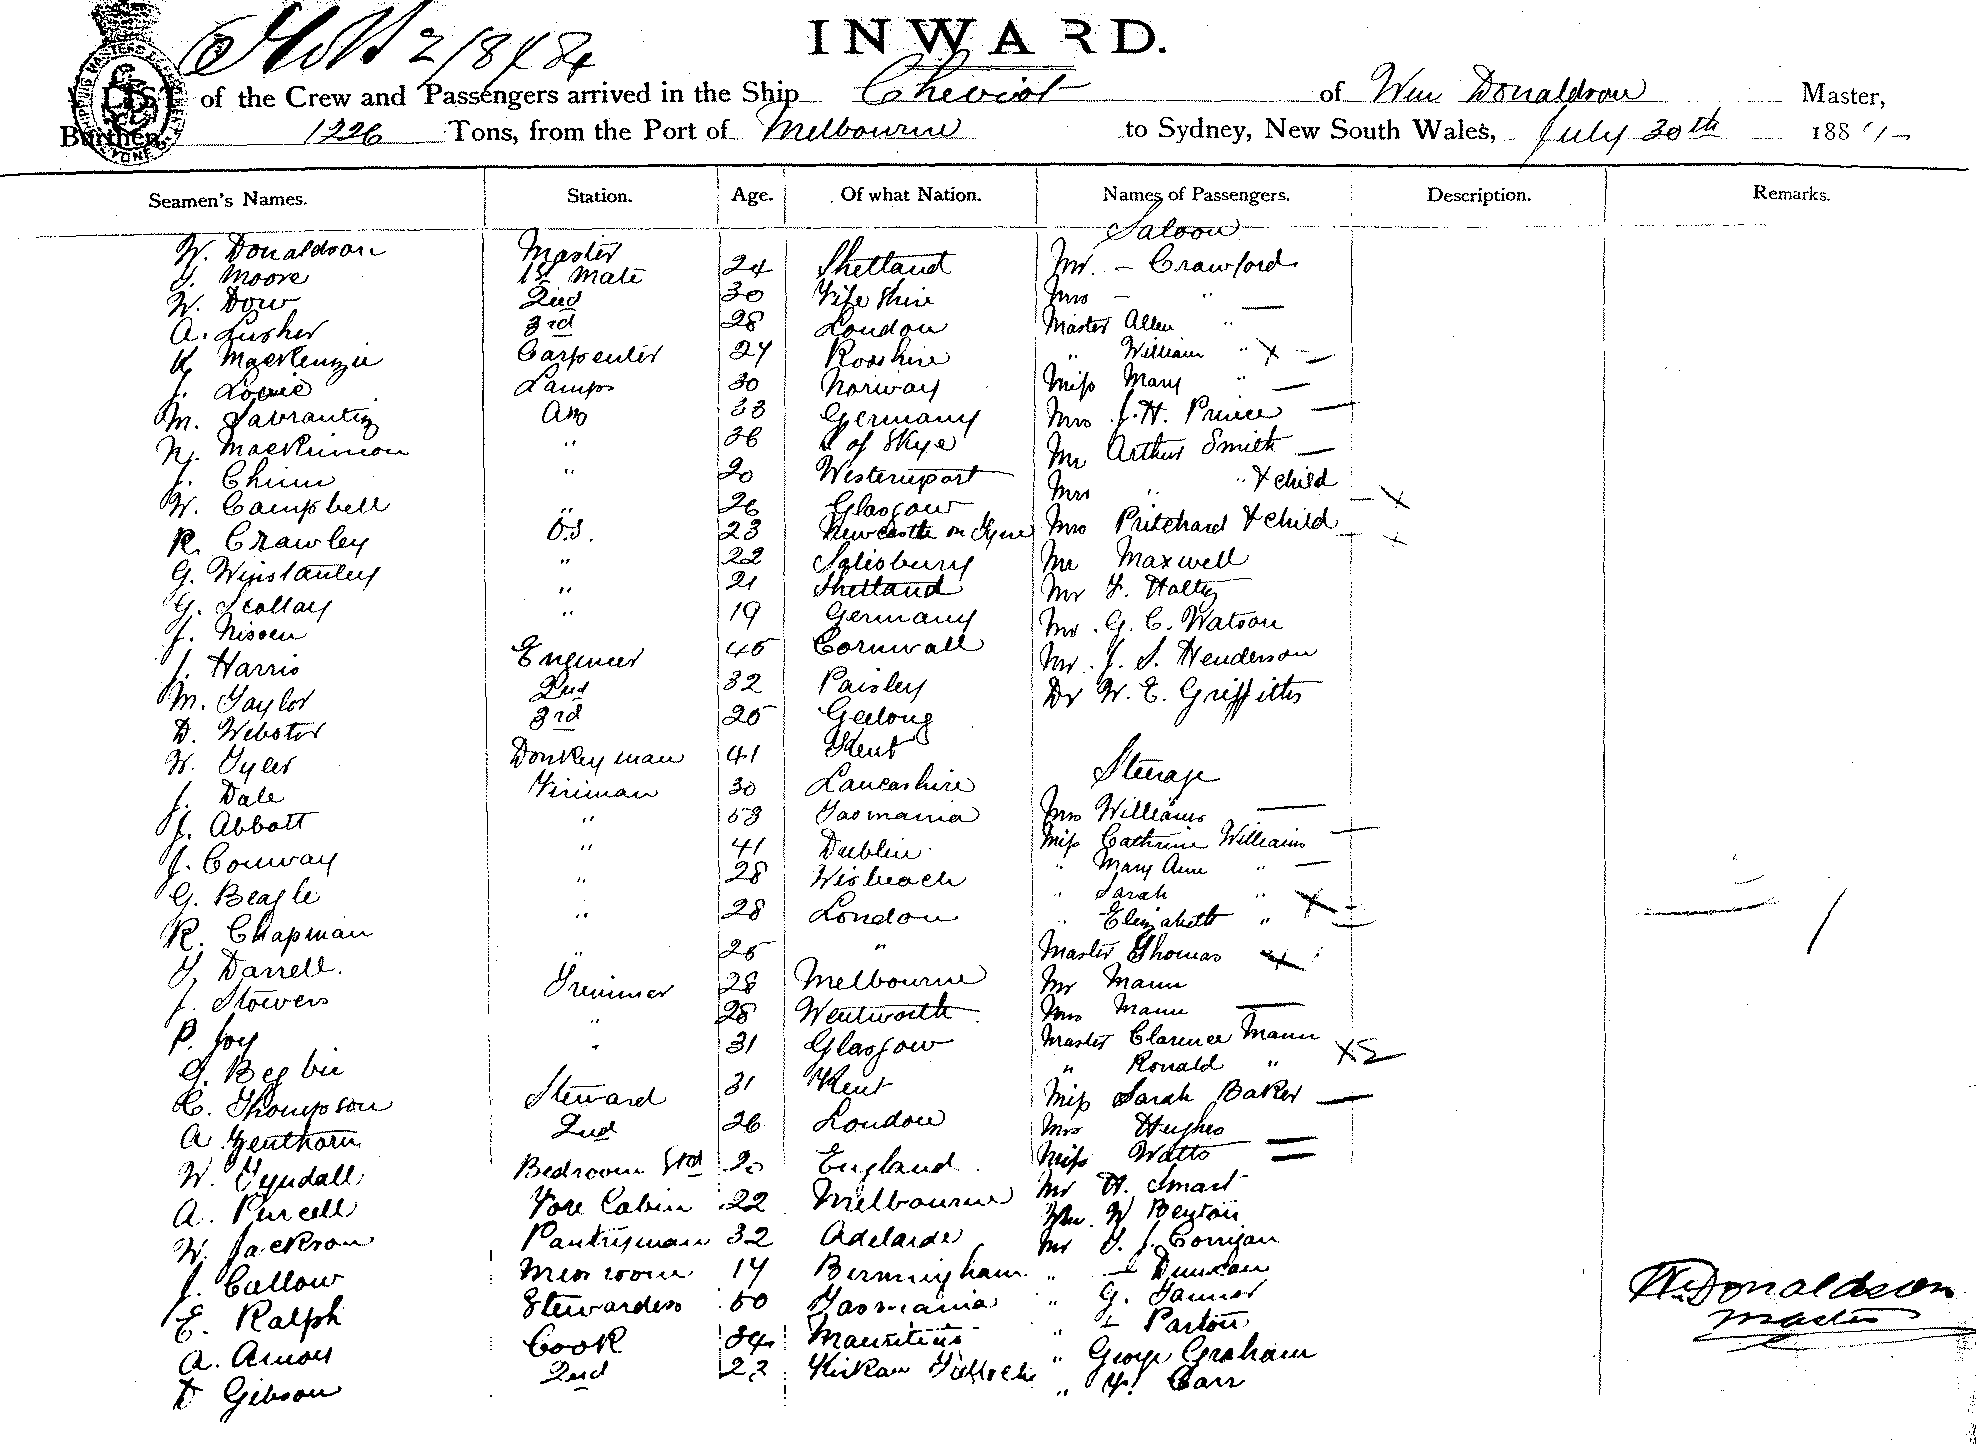 INWARD.
LIST of the Crew and Passengers arrived in the Ship Cheviot of Wm Donaldson Master,
Burthen, 1226 Tons, from the Port of Melbourne to Sydney, New South Wales, July 30th 188
Seamen's Names. Station. Age. Of what Nation. Names of Passengers. Description. Remarks.
Saloon
W. Donaldson Master
Moore 1st Mate 24 Shetland Mr. - Crawford
W. Dow 2nd 30 Fifeshire Mrs - "
A. Lusher 3rd 28 London Master Allen "
MacKenzie Carpenter 24 Rosshire " William "
J. Lowie Lamps 30 Norway Miss Mary "
M. AB 33 Germany Mrs J. H. Prince
N. MacKinnon " 36 I of Skye Mr Arthur Smith
J. Chinn " 20 Westernport Mrs " " & child
W. Campbell " 26 Glasgow
R. Crawley O.S. 23 Newcastle on Tyne Mrs Pritchard & child
G. Winstanley " 22 Salisbury Mr Maxwell
G. Scollay " 21 Shetland Mr F. Holtz
J. Nissen " 19 Germany Mr. G. C. Watson
J. Harris Engineer 45 Cornwall Mr. J. S. Henderson
M. Taylor 2nd 32 Paisley Dr W. E. Griffiths
D. Webster 3rd 25 Geelong
W. Tyler Donkeyman 41 Kent
Steerage
J. Dale Fireman 30 Lancashire
J. Abbott " 53 Tasmania Mrs Williams
J. Conway " 41 Dublin Miss Cathrine Williams
G. Beagle " 28 Wisbeach " Mary Ann "
R. Chapman " 28 London " Sarah "
" Elizabeth "
T. Darrell. " 25 " Master Thomas
J. Stowers Trimmer 28 Melbourne Mr Mann
P. Joy " 28 Wentworth Mrs Mann
G. Begbie " 31 Glasgow Master Clarence Mann
" Ronald "
C. Thompson Steward 31 Kent Miss Sarah Baker
A. Genthorn 2nd 26 London Mrs Hughes
W. Tyndall Bedroom Std 20 England Miss Watts
A. Purcell Fore Cabin 22 Melbourne Mr H. Smart
W. Jackson Pantryman 32 Adelaide W Benton
J. Callow Messroom 17 Birmingham Mr T. J. Corrigan
E. Ralph Stewardess 50 Tasmania " - Duncan
A. Amoy Cook 34 Mauritius " G. Tanner
D Gibson 2nd 23 " - Parton
" George Graham
" Carr
W. Donaldson
Master